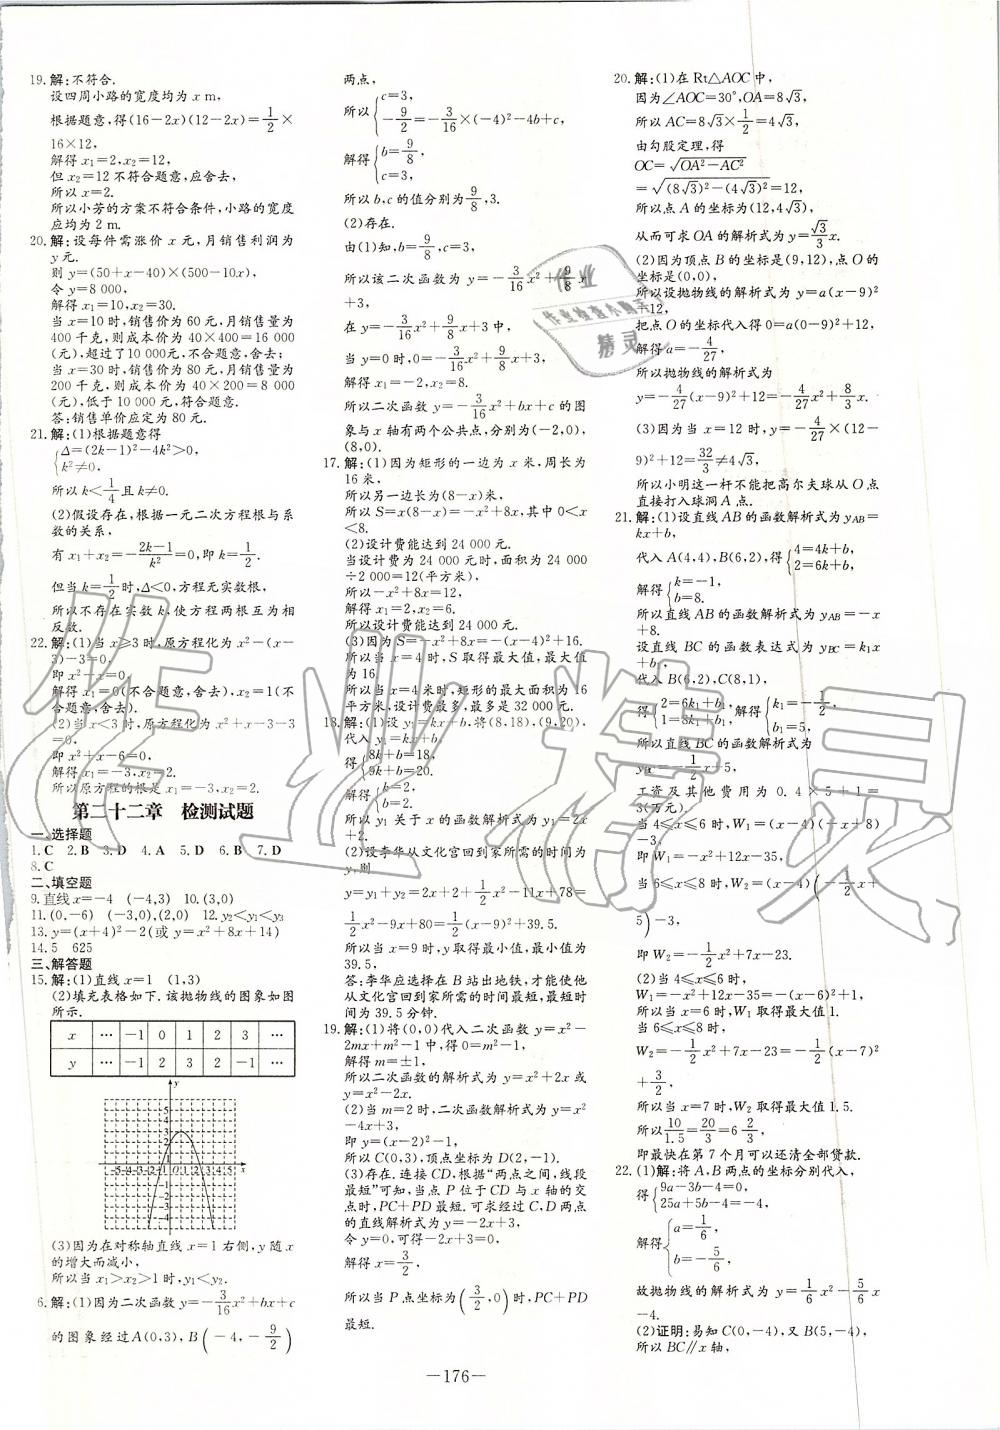 19. 解:不符合.
设四周小路的宽度均为 x m,
根据题意,得(16-2x)(12-2x)=1/2×
16×12,
解得 x₁=2,x₂=12,
但 x₂=12 不符合题意,应舍去,
所以 x=2.
所以小芳的方案不符合条件,小路的宽度
应均为 2 m.
20. 解:设每件需涨价 x 元,月销售利润为
y元.
则 y=(50+x-40)×(500-10x),
令 y=8 000,
解得 x₁=10,x₂=30.
当 x=10 时,销售价为 60 元,月销售量为
400 千克,则成本价为 40×400=16 000
(元),超过了10 000元,不合题意,舍去;
当 x=30 时,销售价为 80 元,月销售量为
200 千克,则成本价为 40×200=8 000
(元),低于 10 000 元,符合题意.
答:销售单价应定为 80 元.
21. 解:(1)根据题意得
{Δ=(2k-1)²-4k²>0,
k²≠0,
所以 k<1/4且 k≠0.
(2)假设存在,根据一元二次方程根与系
数的关系,
有 x₁+x₂=-(2k-1)/k²=0,即 k=1/2.
但当 k=1/2时,Δ<0,方程无实数根,
所以不存在实数 k,使方程两根互为相
反数.
22. 解:(1)当 x≥3 时,原方程化为 x²-(x-
3)-3=0,
即 x²-x=0,
解得 x₁=0(不合题意,舍去),x₂=1(不
合题意,舍去).
(2)当 x<3 时,原方程化为 x²+x-3-3
=0,
即 x²+x-6=0,
解得 x₁=-3,x₂=2.
所以原方程的根是 x₁=-3,x₂=2.
第二十二章 检测试题
一、选择题
1. C 2. B 3. D 4. A 5. D 6. B 7. D
8. C
二、填空题
9. 直线 x=-4 (-4,3) 10. (3,0)
11. (0,-6) (-3,0),(2,0) 12. y₂<y₁<y₃
13. y=(x+4)²-2(或 y=x²+8x+14)
14. 5 625
三、解答题
15. 解:(1)直线 x=1 (1,3)
(2)填充表格如下. 该抛物线的图象如图
所示.
x … -1 0 1 2 3 …
y … -1 2 3 2 -1 …
y
5
4
3
2
1
-5-4-3-2-1 O 1 2 3 4 5 x
-1
-2
-3
-4
(3)因为在对称轴直线 x=1 右侧,y 随 x
的增大而减小,
所以当 x₁>x₂>1 时,y₁<y₂.
6. 解:(1)因为二次函数 y=-3/16x²+bx+c
的图象经过A(0,3),B(-4,-9/2)
两点,
所以{c=3,
-9/2=-3/16×(-4)²-4b+c,
解得{b=9/8,
c=3,
所以 b,c 的值分别为9/8,3.
(2)存在.
由(1)知,b=9/8,c=3,
所以该二次函数为 y=-3/16x²+9/8x
+3,
在 y=-3/16x²+9/8x+3 中,
当 y=0 时,0=-3/16x²+9/8x+3,
解得 x₁=-2,x₂=8.
所以二次函数 y=-3/16x²+bx+c 的图
象与 x 轴有两个公共点,分别为(-2,0),
(8,0).
17. 解:(1)因为矩形的一边为 x 米,周长为
16 米,
所以另一边长为(8-x)米,
所以 S=x(8-x)=-x²+8x,其中 0<x
<8.
(2)设计费能达到 24 000 元.
当设计费为 24 000 元时,面积为 24 000
÷2 000=12(平方米),
所以-x²+8x=12,
解得 x₁=2,x₂=6.
所以设计费能达到 24 000 元.
(3)因为 S=-x²+8x=-(x-4)²+16.
所以当 x=4 时,S 取得最大值,最大值
为 16.
所以当 x=4 米时,矩形的最大面积为 16
平方米,设计费最多,最多是 32 000 元.
18. 解:(1)设 y₁=kx+b,将(8,18),(9,20),
代入 y₁=kx+b,
得{8k+b=18,
9k+b=20.
解得{k=2,
b=2,
所以 y₁ 关于 x 的函数解析式为 y₁=2x
+2.
(2)设李华从文化宫回到家所需的时间为
y,则
y=y₁+y₂=2x+2+1/2x²-11x+78=
1/2x²-9x+80=1/2(x-9)²+39.5.
所以当 x=9 时,y 取得最小值,最小值为
39.5,
答:李华应选择在 B 站出地铁,才能使他
从文化宫回到家所需的时间最短,最短时
间为 39.5 分钟.
19. 解:(1)将(0,0)代入二次函数 y=x²-
2mx+m²-1 中,得 0=m²-1,
解得 m=±1,
所以二次函数的解析式为 y=x²+2x 或
y=x²-2x.
(2)当 m=2 时,二次函数解析式为 y=x²
-4x+3,
即 y=(x-2)²-1,
所以 C(0,3),顶点坐标为 D(2,-1).
(3)存在. 连接 CD,根据“两点之间,线段
最短”可知,当点 P 位于 CD 与 x 轴的交
点时,PC+PD 最短. 可求经过 C,D 两点
的直线解析式为 y=-2x+3,
令 y=0,可得-2x+3=0,
解得 x=3/2,
所以当 P 点坐标为(3/2,0)时,PC+PD
最短.
20. 解:(1)在 Rt△AOC 中,
因为∠AOC=30°,OA=8√3,
所以 AC=8√3×1/2=4√3,
由勾股定理,得
OC=√(OA²-AC²)
=√((8√3)²-(4√3)²)=12,
所以点 A 的坐标为(12,4√3),
从而可求 OA 的解析式为 y=√3/3x.
(2)因为顶点 B 的坐标是(9,12),点 O 的
坐标是(0,0),
所以设抛物线的解析式为 y=a(x-9)²
+12,
把点 O 的坐标代入得 0=a(0-9)²+12,
解得 a=-4/27,
所以抛物线的解析式为
y=-4/27(x-9)²+12=-4/27x²+8/3x.
(3)因为当 x=12 时,y=-4/27×(12-
9)²+12=32/3≠4√3,
所以小明这一杆不能把高尔夫球从 O 点
直接打入球洞 A 点.
21. 解:(1)设直线 AB 的函数解析式为 yAB=
kx+b,
代入 A(4,4),B(6,2),得{4=4k+b,
2=6k+b,
解得{k=-1,
b=8.
所以直线 AB 的函数解析式为 yAB=-x
+8.
设直线 BC 的函数表达式为 yBC=k₁x
+b₁,
代入 B(6,2),C(8,1),
得{2=6k₁+b₁,
1=8k₁+b₁, 解得{k₁=-1/2,
b₁=5.
所以直线 BC 的函数解析式为
yBC=-1/2x+5,
工资及其他费用为 0.4×5+1=
3(万元).
当 4≤x≤6 时,W₁=(x-4)(-x+8)
-3,
即 W₁=-x²+12x-35,
当 6≤x≤8 时,W₂=(x-4)(-1/2x+
5)-3,
即 W₂=-1/2x²+7x-23.
(2)当 4≤x≤6 时,
W₁=-x²+12x-35=-(x-6)²+1,
所以当 x=6 时,W₁ 取得最大值1.
当 6≤x≤8 时,
W₂=-1/2x²+7x-23=-1/2(x-7)²
+3/2,
所以当 x=7 时,W₂ 取得最大值 1.5.
所以10/1.5=20/3=6 2/3,
即最快在第 7 个月可以还清全部贷款.
22. (1)解:将 A,B 两点的坐标分别代入,
得{9a-3b-4=0,
25a+5b-4=-4,
解得{a=1/6,
b=-5/6,
故抛物线的解析式为 y=1/6x²-5/6x
-4.
(2)证明:易知 C(0,-4),又 B(5,-4),
所以 BC∥x 轴,
—176—
作业精灵
作业
作业检查小精灵
精灵